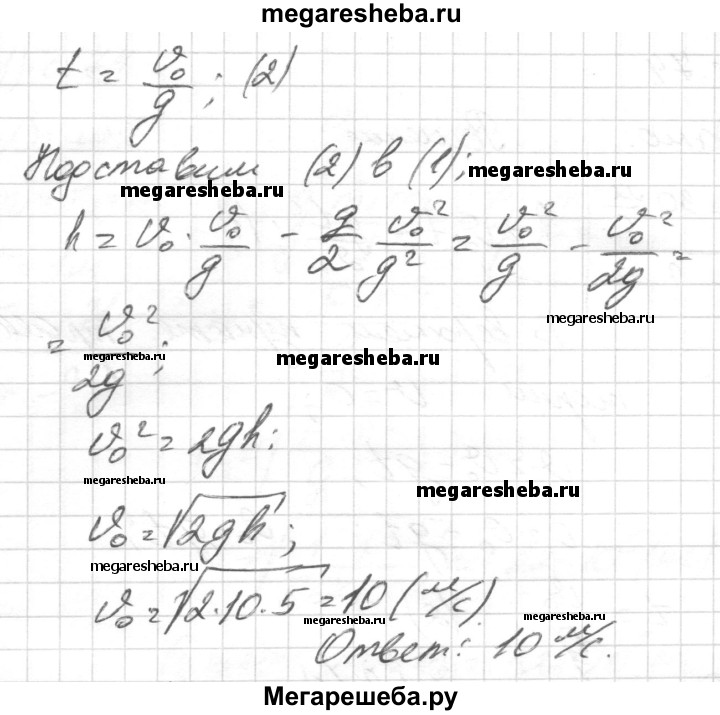 megaresheba.ru
t = v₀/g ; (2)
Подставим (2) в (1);
megaresheba.ru
megaresheba.ru
h = v₀ · v₀/g - g/2 v₀²/g² = v₀²/g - v₀²/2g =
megaresheba.ru
= v₀²/2g ;
megaresheba.ru
megaresheba.ru
v₀² = 2gh;
megaresheba.ru
megaresheba.ru
v₀ = √2gh ;
megaresheba.ru
v₀ = √2·10·5 = 10 (м/с).
megaresheba.ru
megaresheba.ru
Ответ: 10 м/с.
Мегарешеба.ру